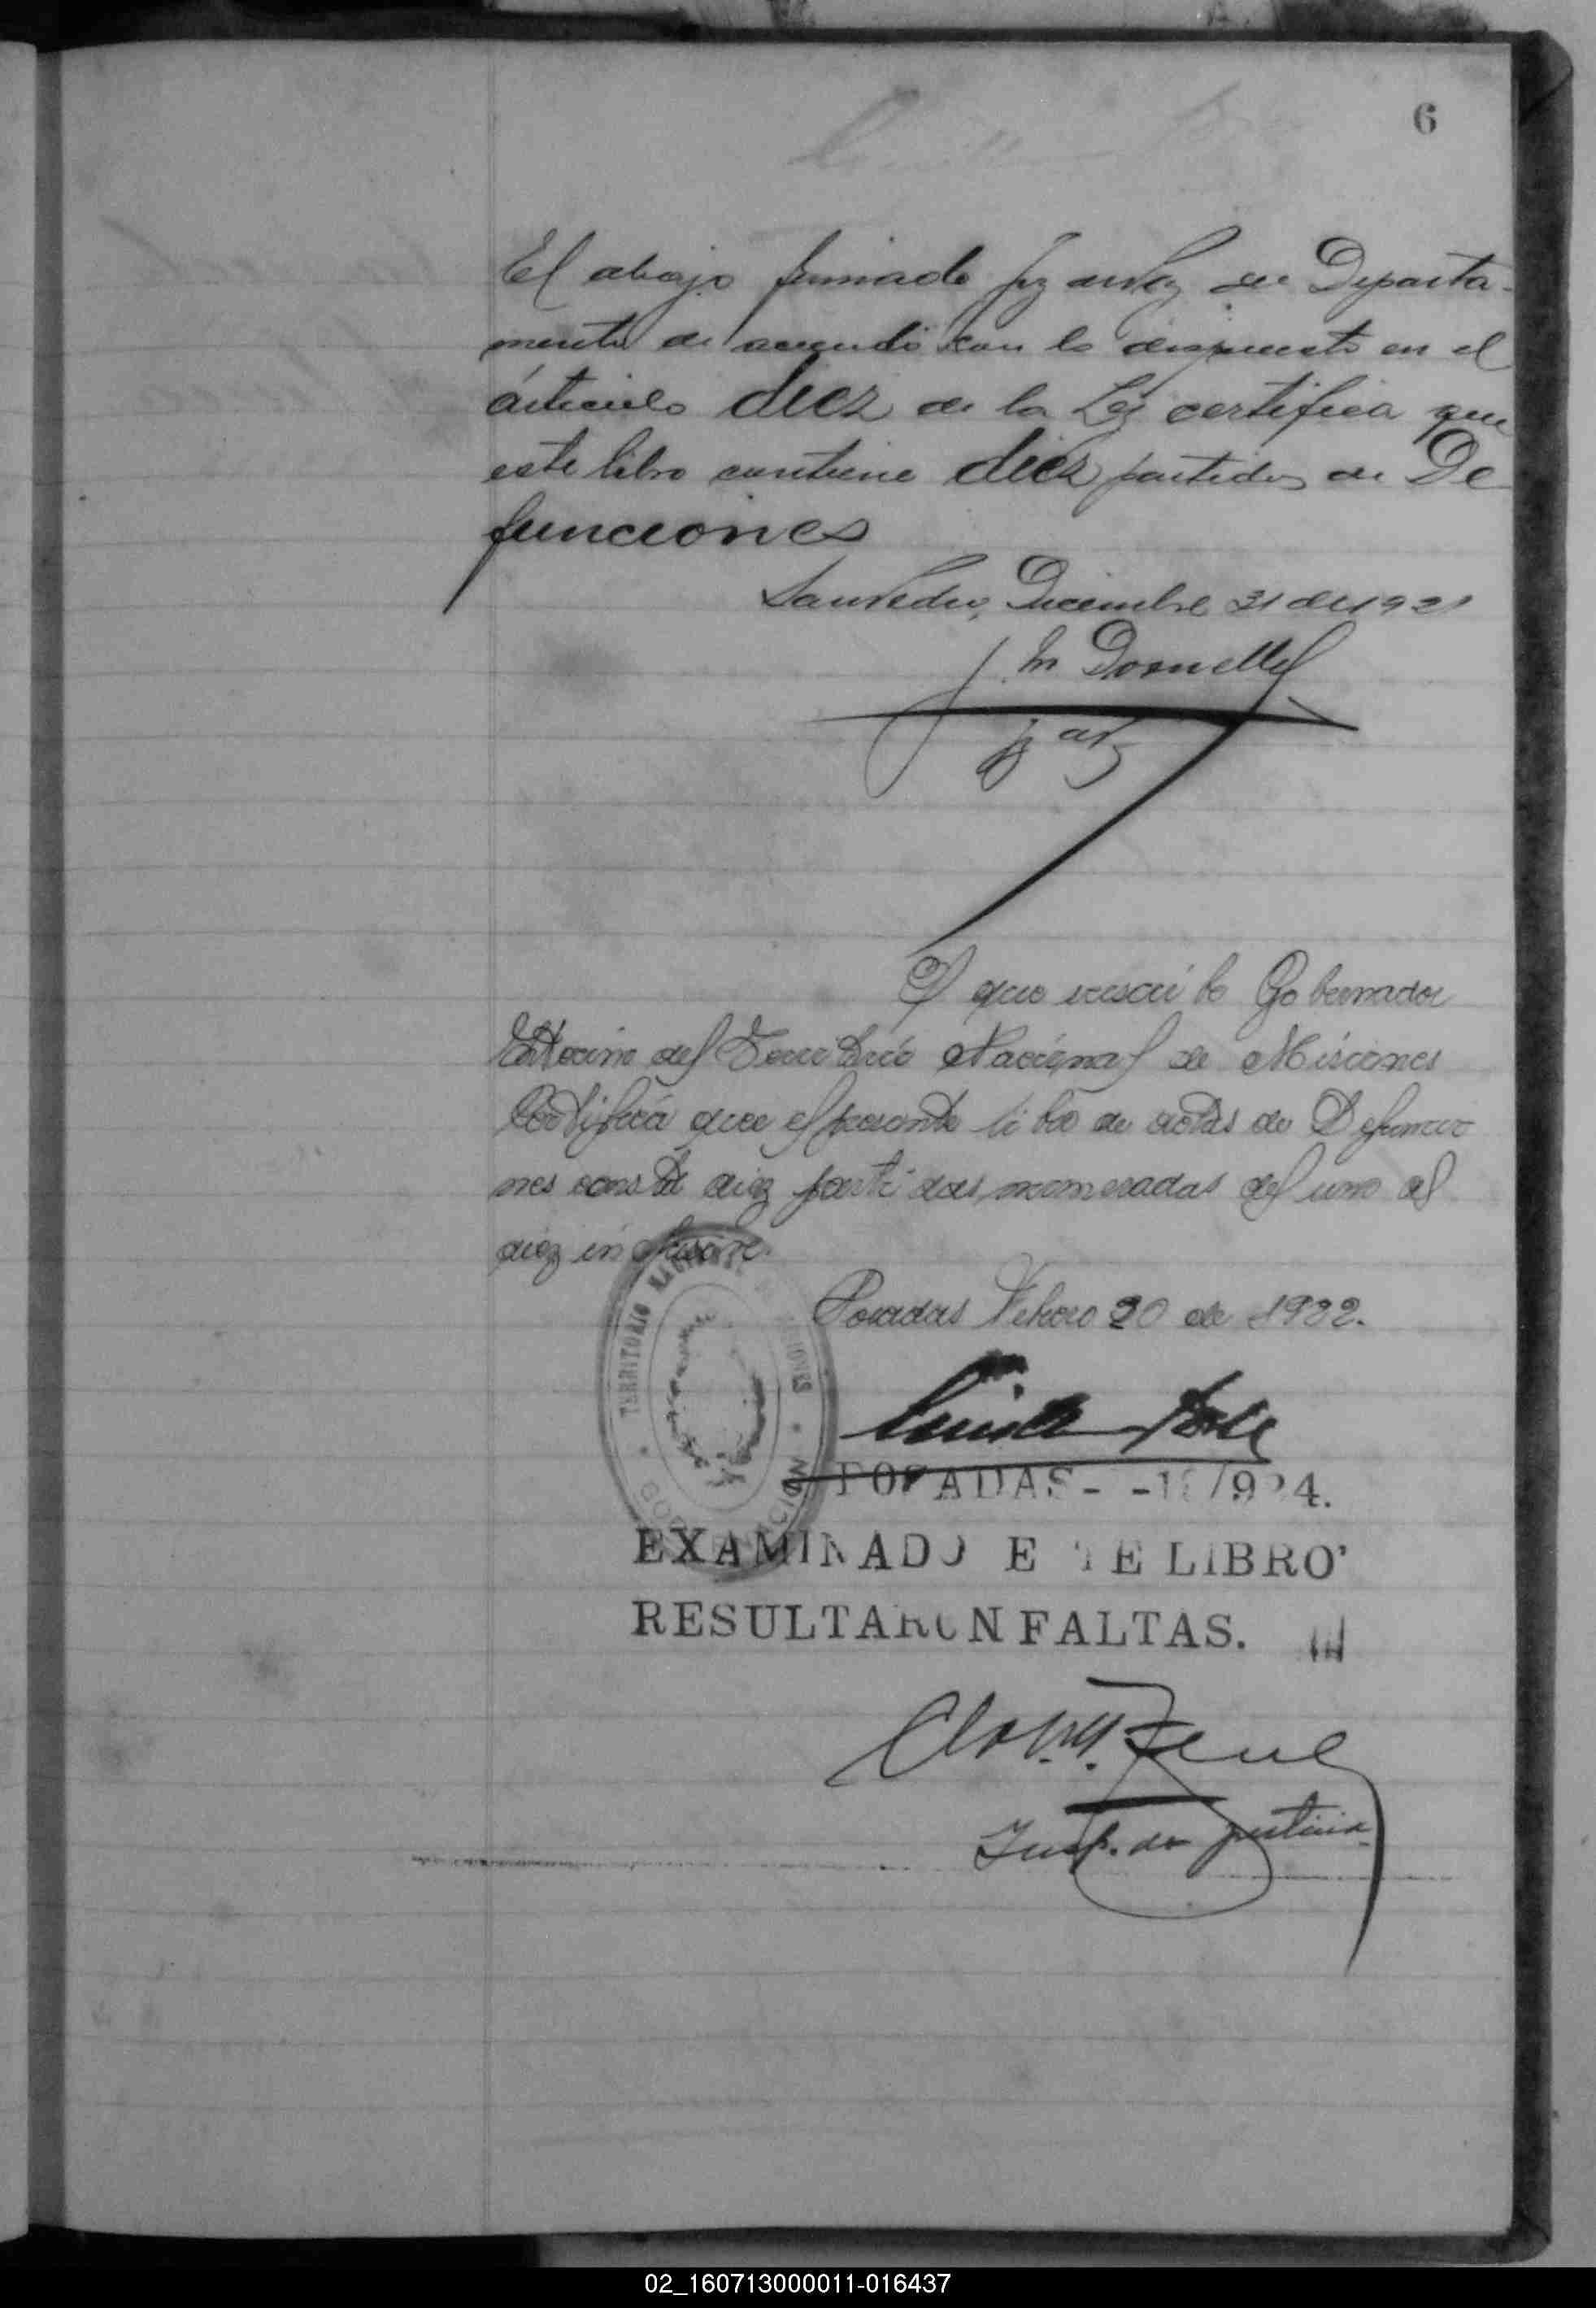 6
El abajo firmado Juez de Paz del Departa-
mento de acuerdo con lo dispuesto en el
árticulo diez de la Ley certifica que
este libro contiene diez partidas de De
funciones
San Pedro, Diciembre 31 de 1921
J. M. Donnelly
El que suscribe Gobernador
Interino del Territorio Nacional de Misiones
Certifica que el presente libro de actas de Defuncio
nes consta diez partidas numeradas del uno al
diez inclusive.
Posadas Febrero 20 de 1922.
TERRITORIO NACIONAL DE MISIONES
GOBERNACION
POSADAS- -1 /924.
EXAMINADO E TE LIBRO
RESULTARON FALTAS.
Insp. de justicia
02_160713000011-016437